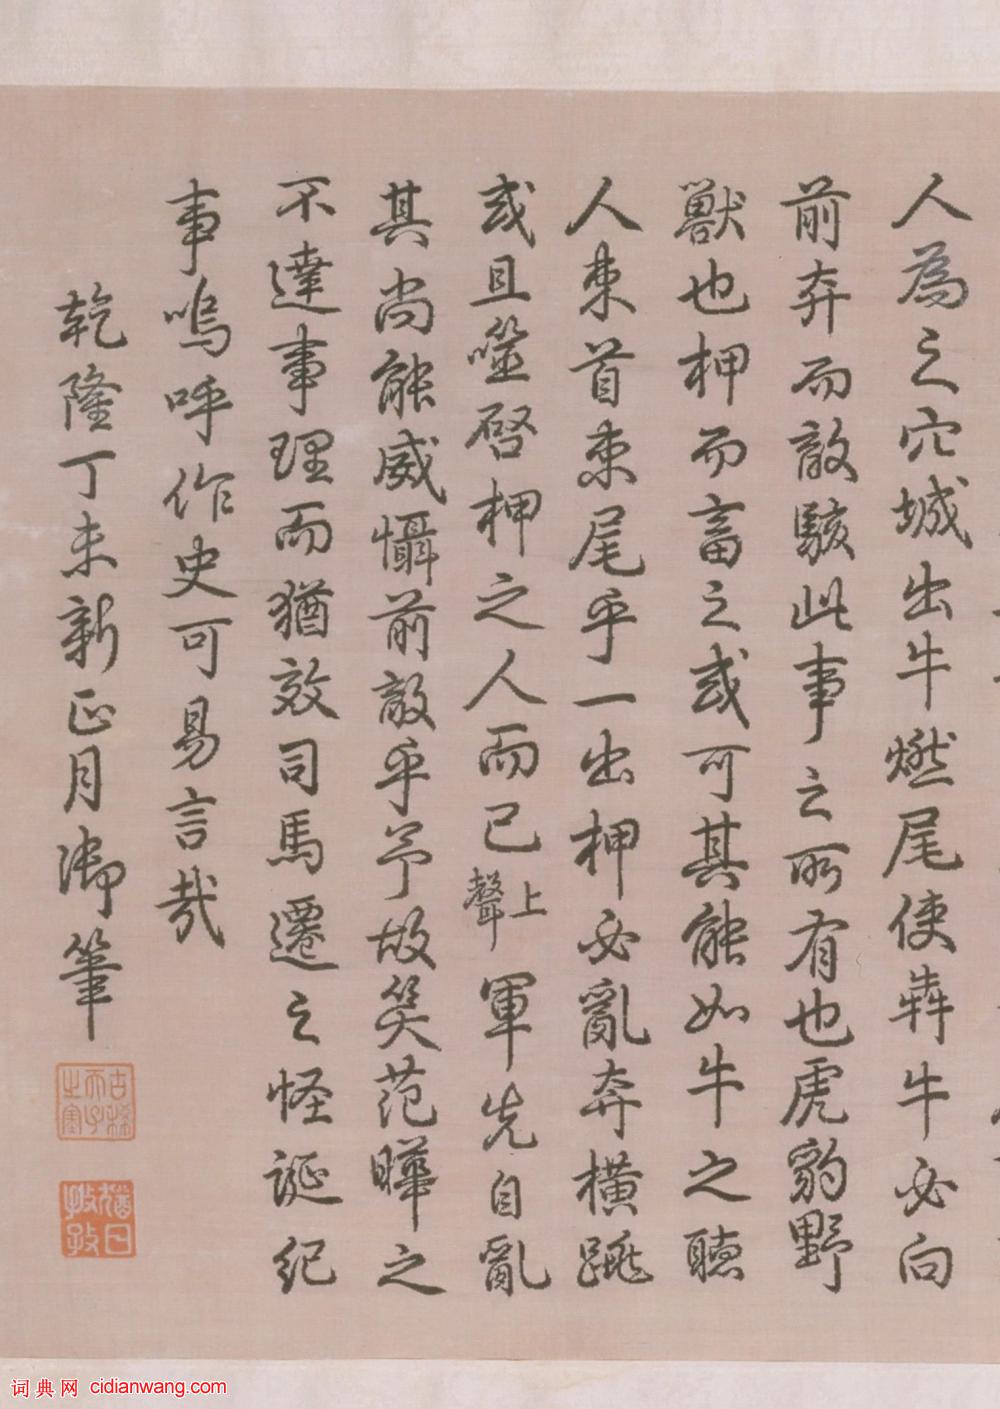 人為之穴城出牛燃尾使犇牛必向
前奔而敵駭此事之所有也虎豹野
獸也柙而畜之或可其能如牛之聽
人束首束尾乎一出柙必亂奔橫跳
或且噬啓柙之人而已上聲軍先自亂
其尚能威懾前敵乎予故笑范曄之
不達事理而猶效司馬遷之怪誕紀
事嗚呼作史可易言哉
乾隆丁未新正月御筆
古稀天子之寶
猶日孜孜
词典网 cidianwang.com